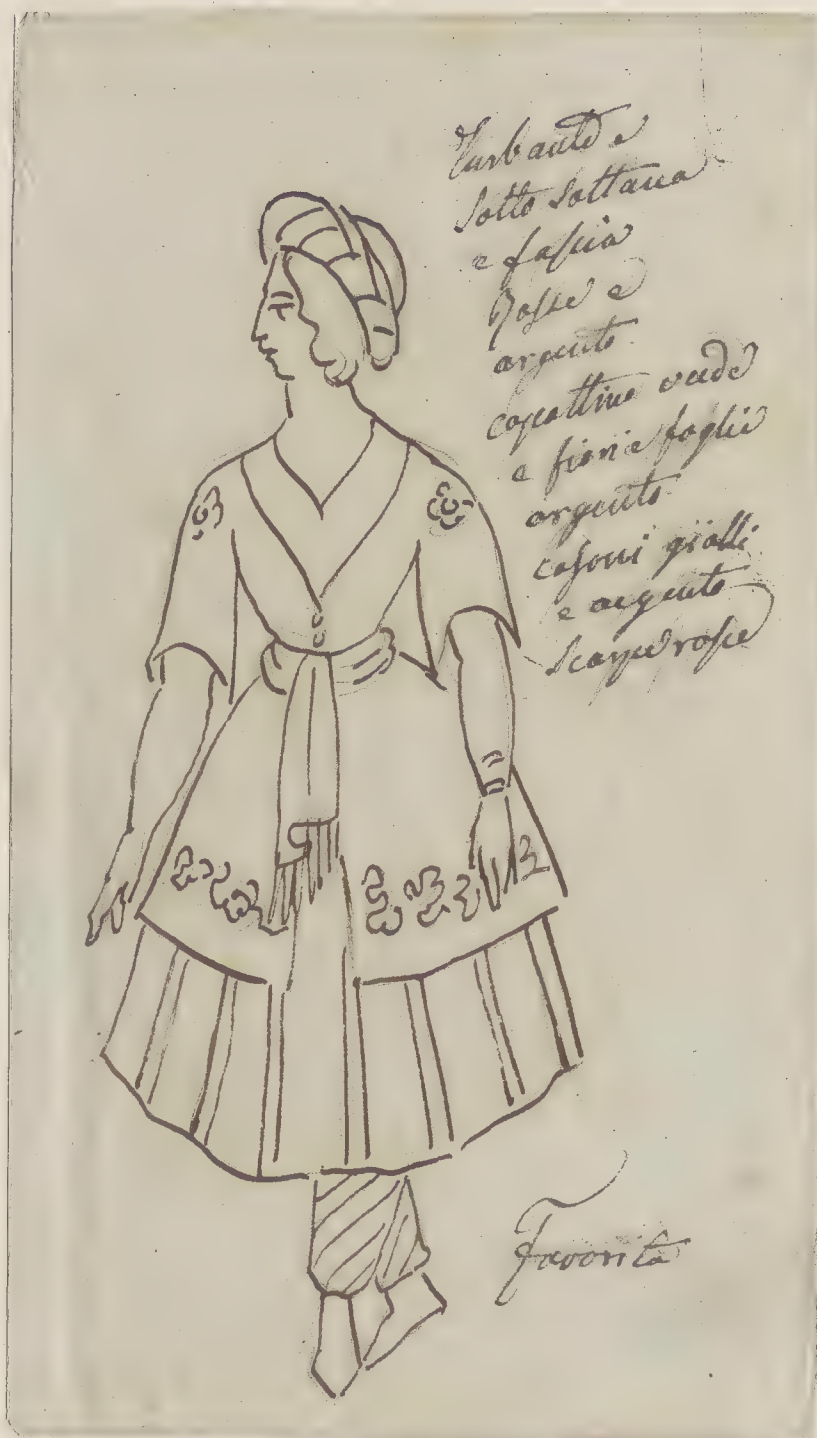 Turbante e
sotto sottana
e fascia
Rosse e
argento
capottino verde
e fiori e foglie
argento
calsoni gialli
e argento
scarpe rosse
Favorita